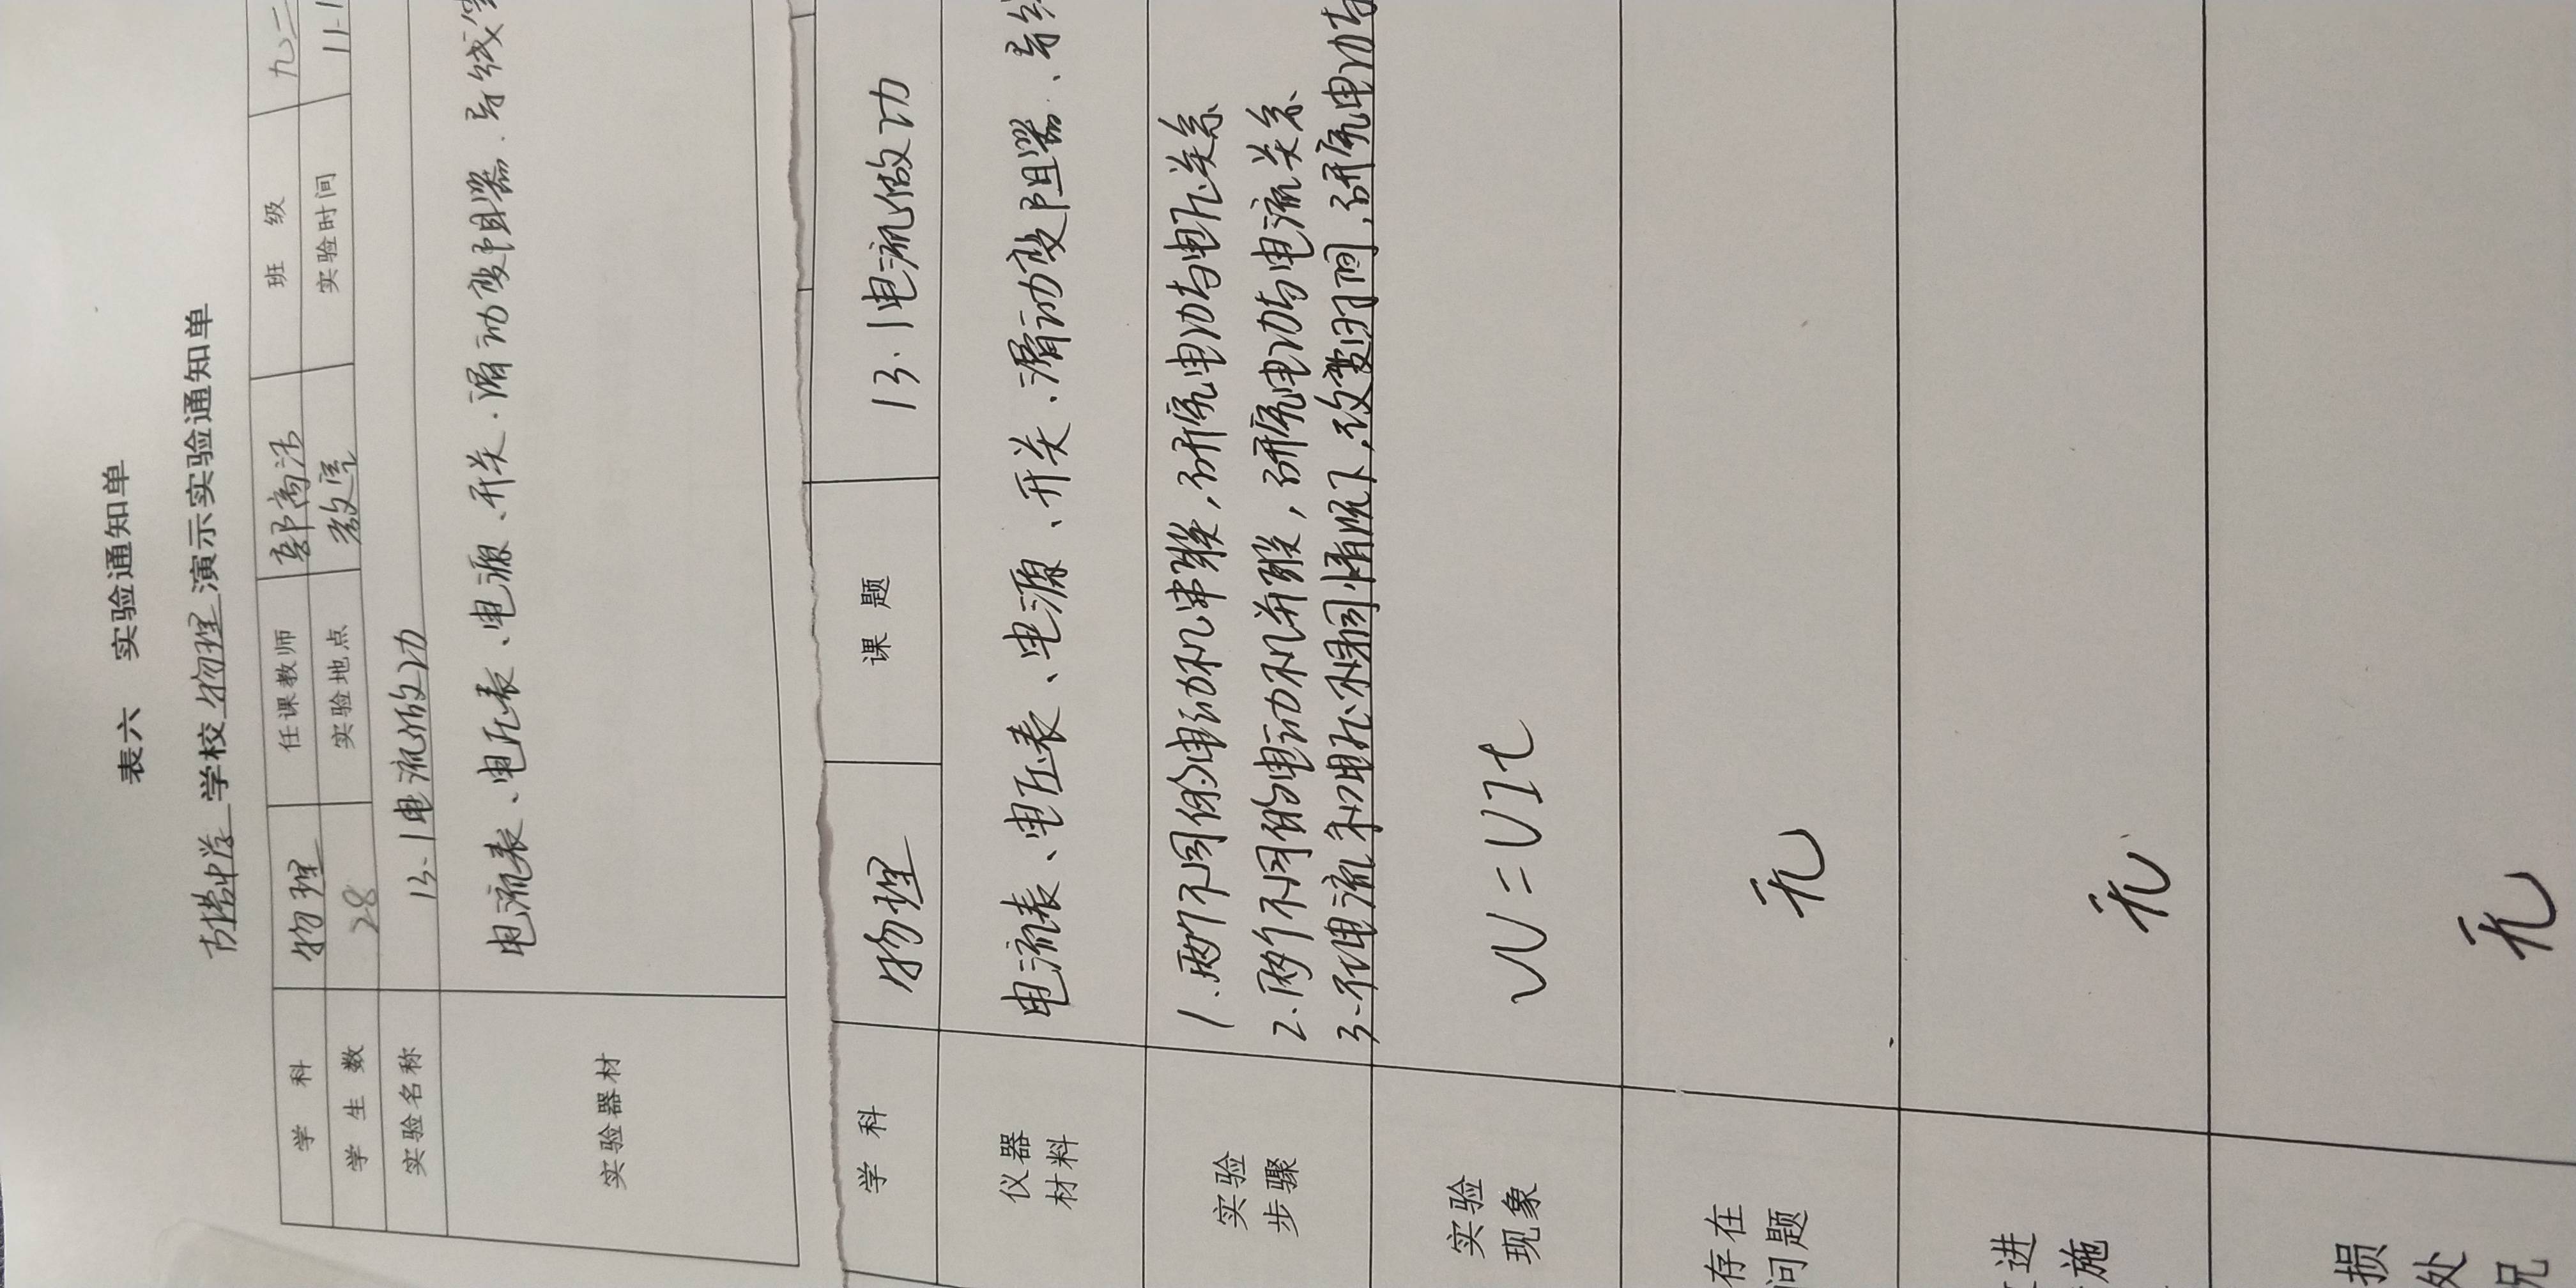 表六 实验通知单
学校 物理 演示实验通知单
学科 物理 任课教师 班级 九二
学生数 28 实验地点 教室 实验时间 11.1
实验名称 13.1电流做功
实验器材 电流表、电压表、电源、开关、滑动变阻器、导线
学科 物理 课题 13.1电流做功
仪器 材料 电流表、电压表、电源、开关、滑动变阻器、导线
实验 步骤
1.两个不同的电动机串联,研究电功与电压关系
2.两个不同的电动机并联,研究电功与电流关系
3.在电流和电压不相同情况下,改变时间,研究电功与
实验 现象 W=UIt
存在 问题 无
进 施 无
损 处 况 无